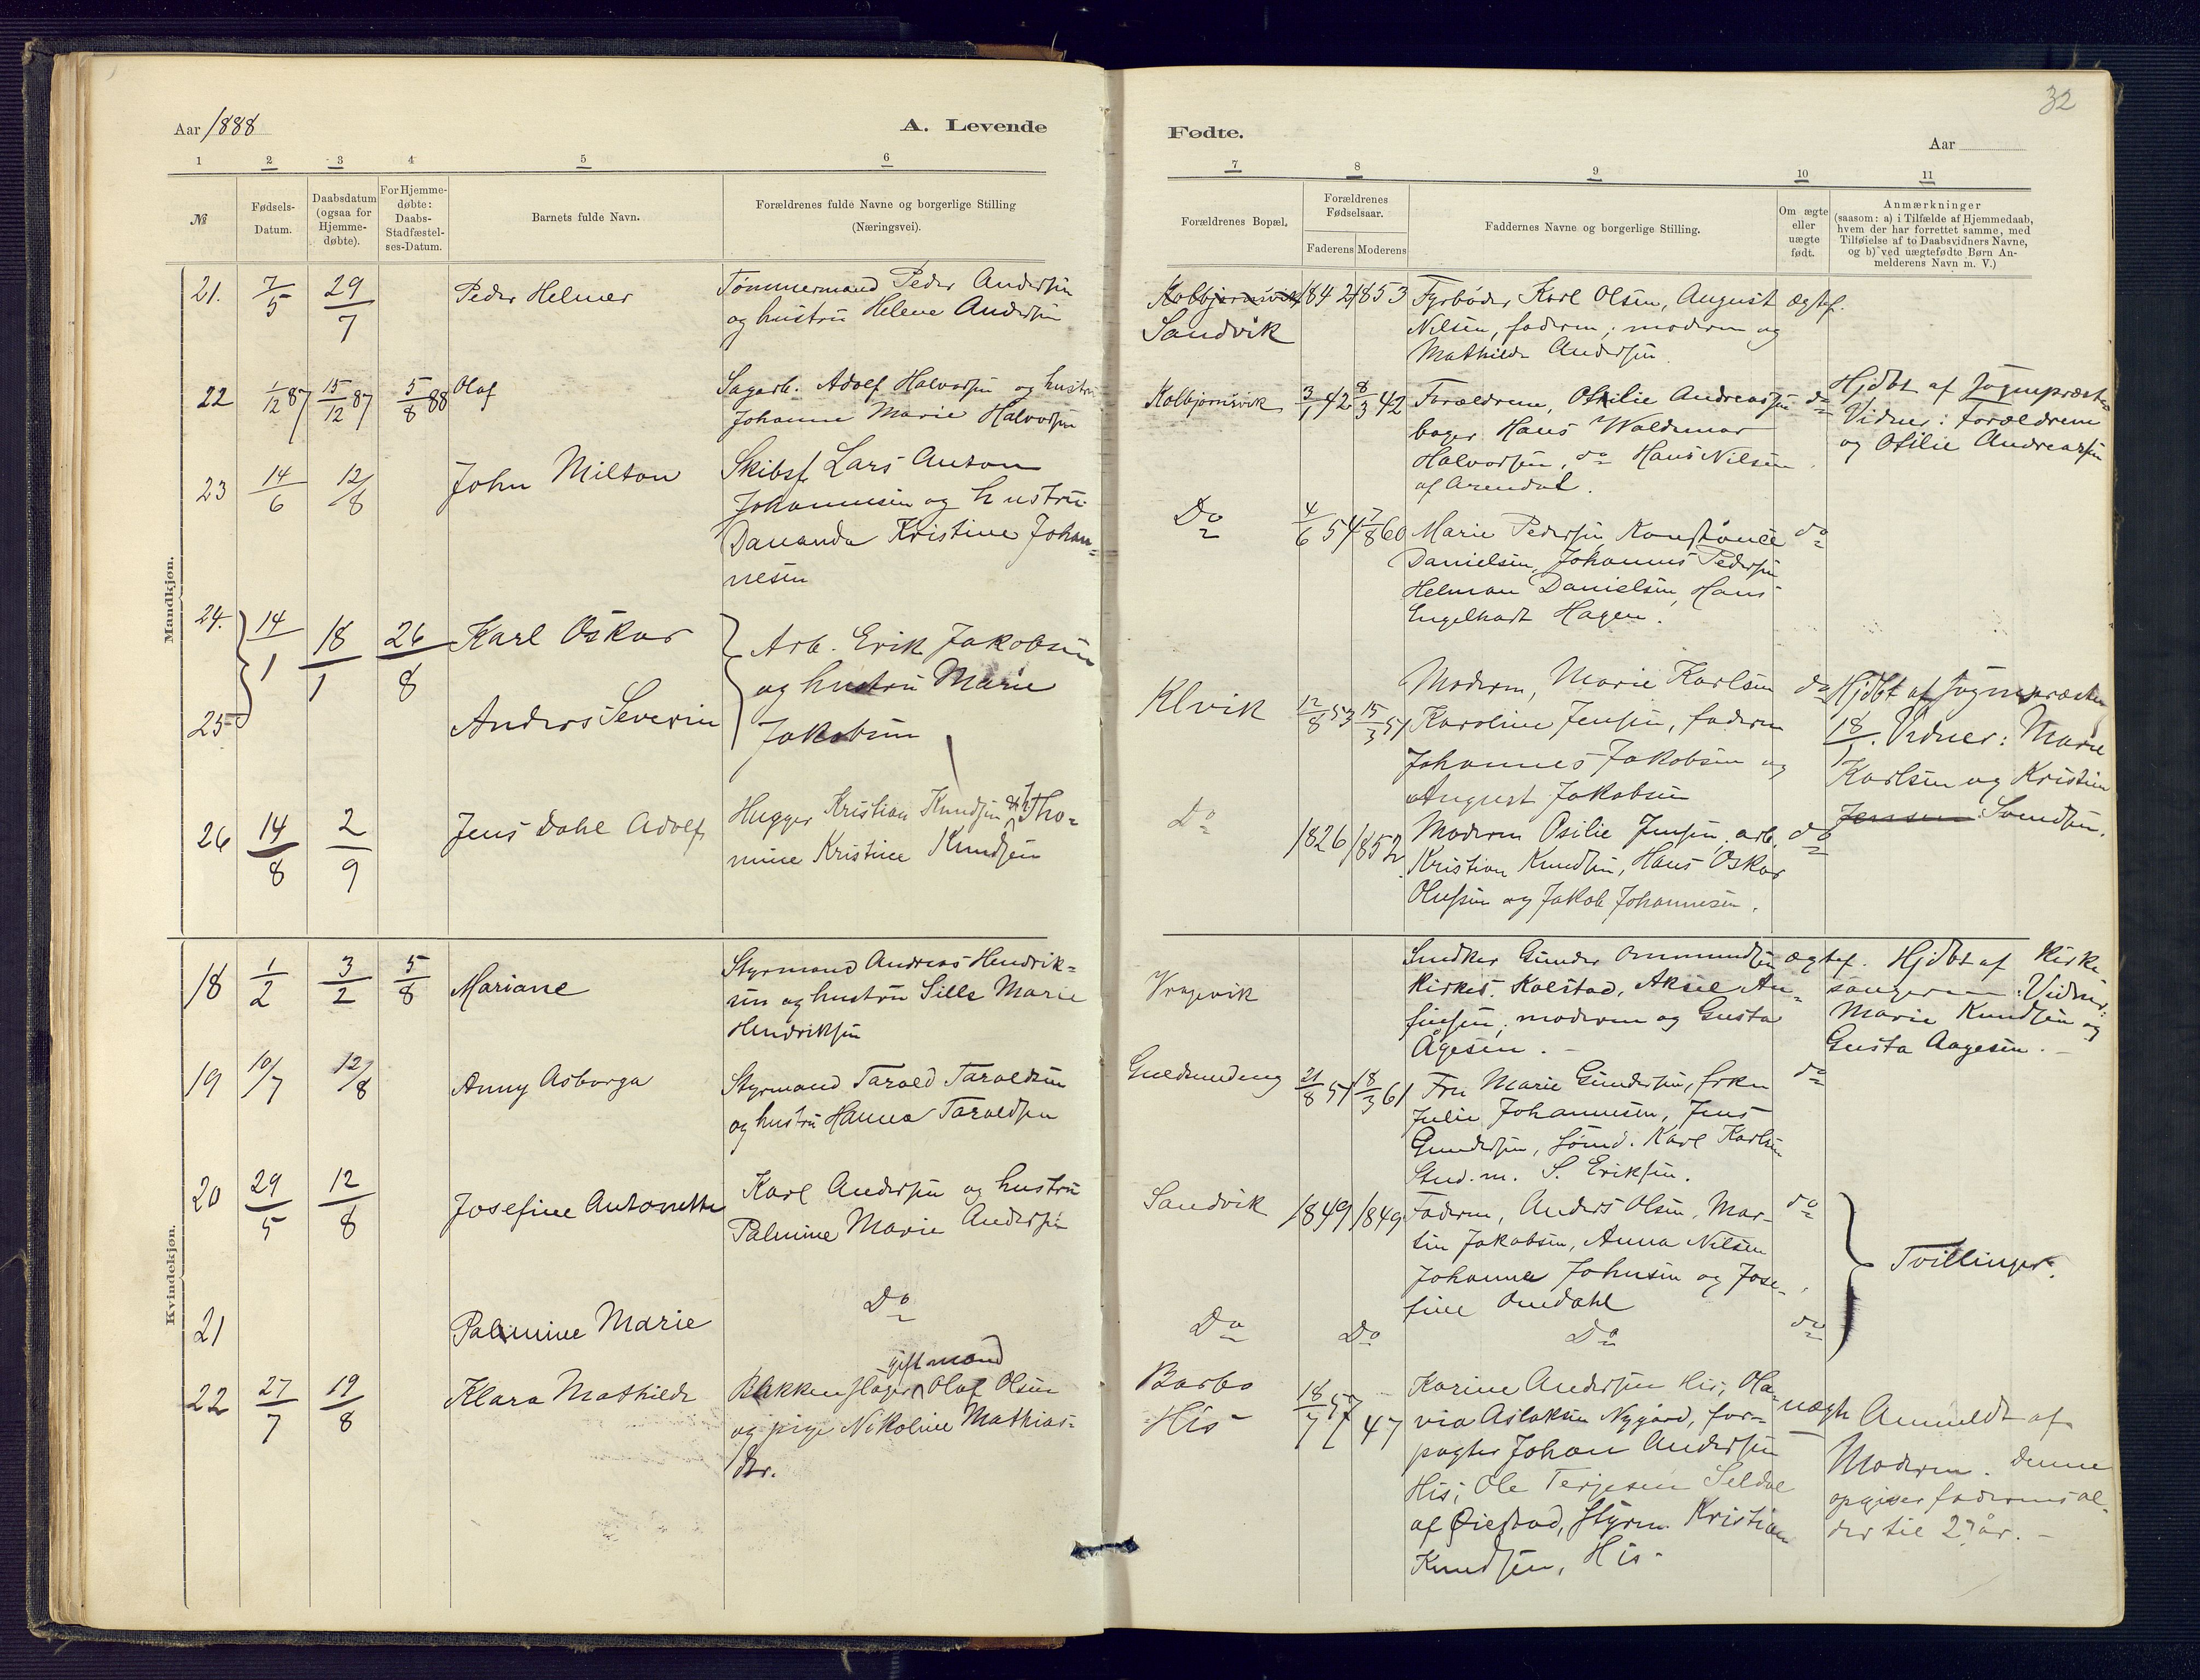 32
Aar 1888
A. Levende
1 2 3 4 5 6
№
Fødsels-
Datum.
Daabsdatum
(ogsaa for
Hjemme-
døbte).
For Hjemme-
døbte:
Daabs-
Stadfæstel-
ses-Datum.
Barnets fulde Navn.
Forældrenes fulde Navne og borgerlige Stilling
(Næringsvei).
Mandkjøn.
21. 7/5 29/7 Peder Helmer
Tømmermand Peder Andersen
og hustru Helene Andersen
22 1/12 87 15/12 87 5/8 88 Olaf
Sagarb. Adolf Halvorsen og hustru
Johanne Marie Halvorsen
23 14/6 12/8 John Milton
Skibsf. Lars Anton
Johannesen og hustru
Dananda Kristine Johan-
nesen
24. 14/1 18/1 26/8 Karl Oskar
25 Anders Severin
Arb. Erik Jakobsen
og hustru Marie
Jakobsen
26 14/8 2/9 Jens Dahl Adolf
Hugger Kristian Knudsen & h. Tho-
mine Kristine Knudsen
Kvindekjøn.
18 1/2 3/2 5/8 Mariane
Styrmand Andreas Hendrik-
sen og hustru Sille Marie
Hendriksen
19 10/7 12/8 Anny Asborga
Styrmand Tarald Taraldsen
og hustru Hanna Taraldsen
20 29/5 12/8 Josefine Antonette
Karl Andersen og hustru
Palmine Marie Andersen
21 Palmine Marie
Do
22 27/7 19/8 Klara Mathilde
gift mand
Bakkenhager Olaf Olsen
og pige Nikoline Mathias-
dtr.
Fødte.
Aar
7 8 9 10 11
Forældrenes Bopæl.
Forældrenes
Fødselsaar.
Faderens Moderens
Faddernes Navne og borgerlige Stilling.
Om ægte
eller
uægte
født.
Anmærkninger
(saasom: a) i Tilfælde af Hjemmedaab,
hvem der har forrettet samme, med
Tilføielse af to Daabsvidners Navne,
og b) ved uægtefødte Børn An-
melderens Navn m. V.)
Kolbjørnsvik
Sandvik
1842 1853
Fyrbøder Karl Olsen, August
Nilsen, faderen, moderen og
Mathilde Andersen.
ægtef.
Kolbjørnsvik 3/1 42 8/3 42
Forældrene, Otilie Andreassen
bager Hans Waldemar
Halvorsen, do Hans Nilsen
af Arendal.
do
Hjdbt af Sognepræsten
Vidner: Forældrene
og Otilie Andreassen
Do 4/6 54 7/8 60
Marie Pedersen Konstance
Danielsen, Johannes Pedersen
Helman Danielsen, Hans
Engelhart Hagen.
do
Klvik 12/8 53 15/3 51
Moderen, Marie Karlsen
Karoline Jensen, faderen
Johannes Jakobsen og
August Jakobsen
do
Hjdbt af Sognepræsten
18/1. Vidner: Marie
Karlsen og Kristine
Jensen Svendsen.
Do 1826 1852
Moderen Osilie Jensen, arb.
Kristian Knudsen, Hans Oskar
Olufsen og Jakob Johannesen.
do
Vragevik
Snedker Gunder Ommundsen
Kirkes. Kolstad, Aksel An-
finsen, moderen og Gusta
Ågesen.
ægtef.
Hjdbt af Kirke-
sangeren Vidner:
Marie Knudsen og
Gusta Aagesen.
Guldsmedeng 21/8 51 18/3 61
Fru Marie Gundersen, frkn
Julie Johannesen, Jens
Gundersen, Sømd. Karl Karlsen
Stud. m. S. Eriksen.
do
Sandvik 1849 1849
Faderen, Anders Olsen, Mar-
tin Jakobsen, Anna Nilsen
Johanne Johnsen og Jose-
fine Omdahl
do
Tvillinger.
Do Do Do do
Barbo
His
18/7 57 47
Karine Andersen His, Ola-
via Aslaksen Nygård, for-
pagter Johan Andersen
His, Ole Terjesen Seldal
af Øiestad, Styrm. Kristian
Knudsen, His
uægte
Anmeldt af
Moderen. Denne
opgiver faderens al-
der til 27 år.